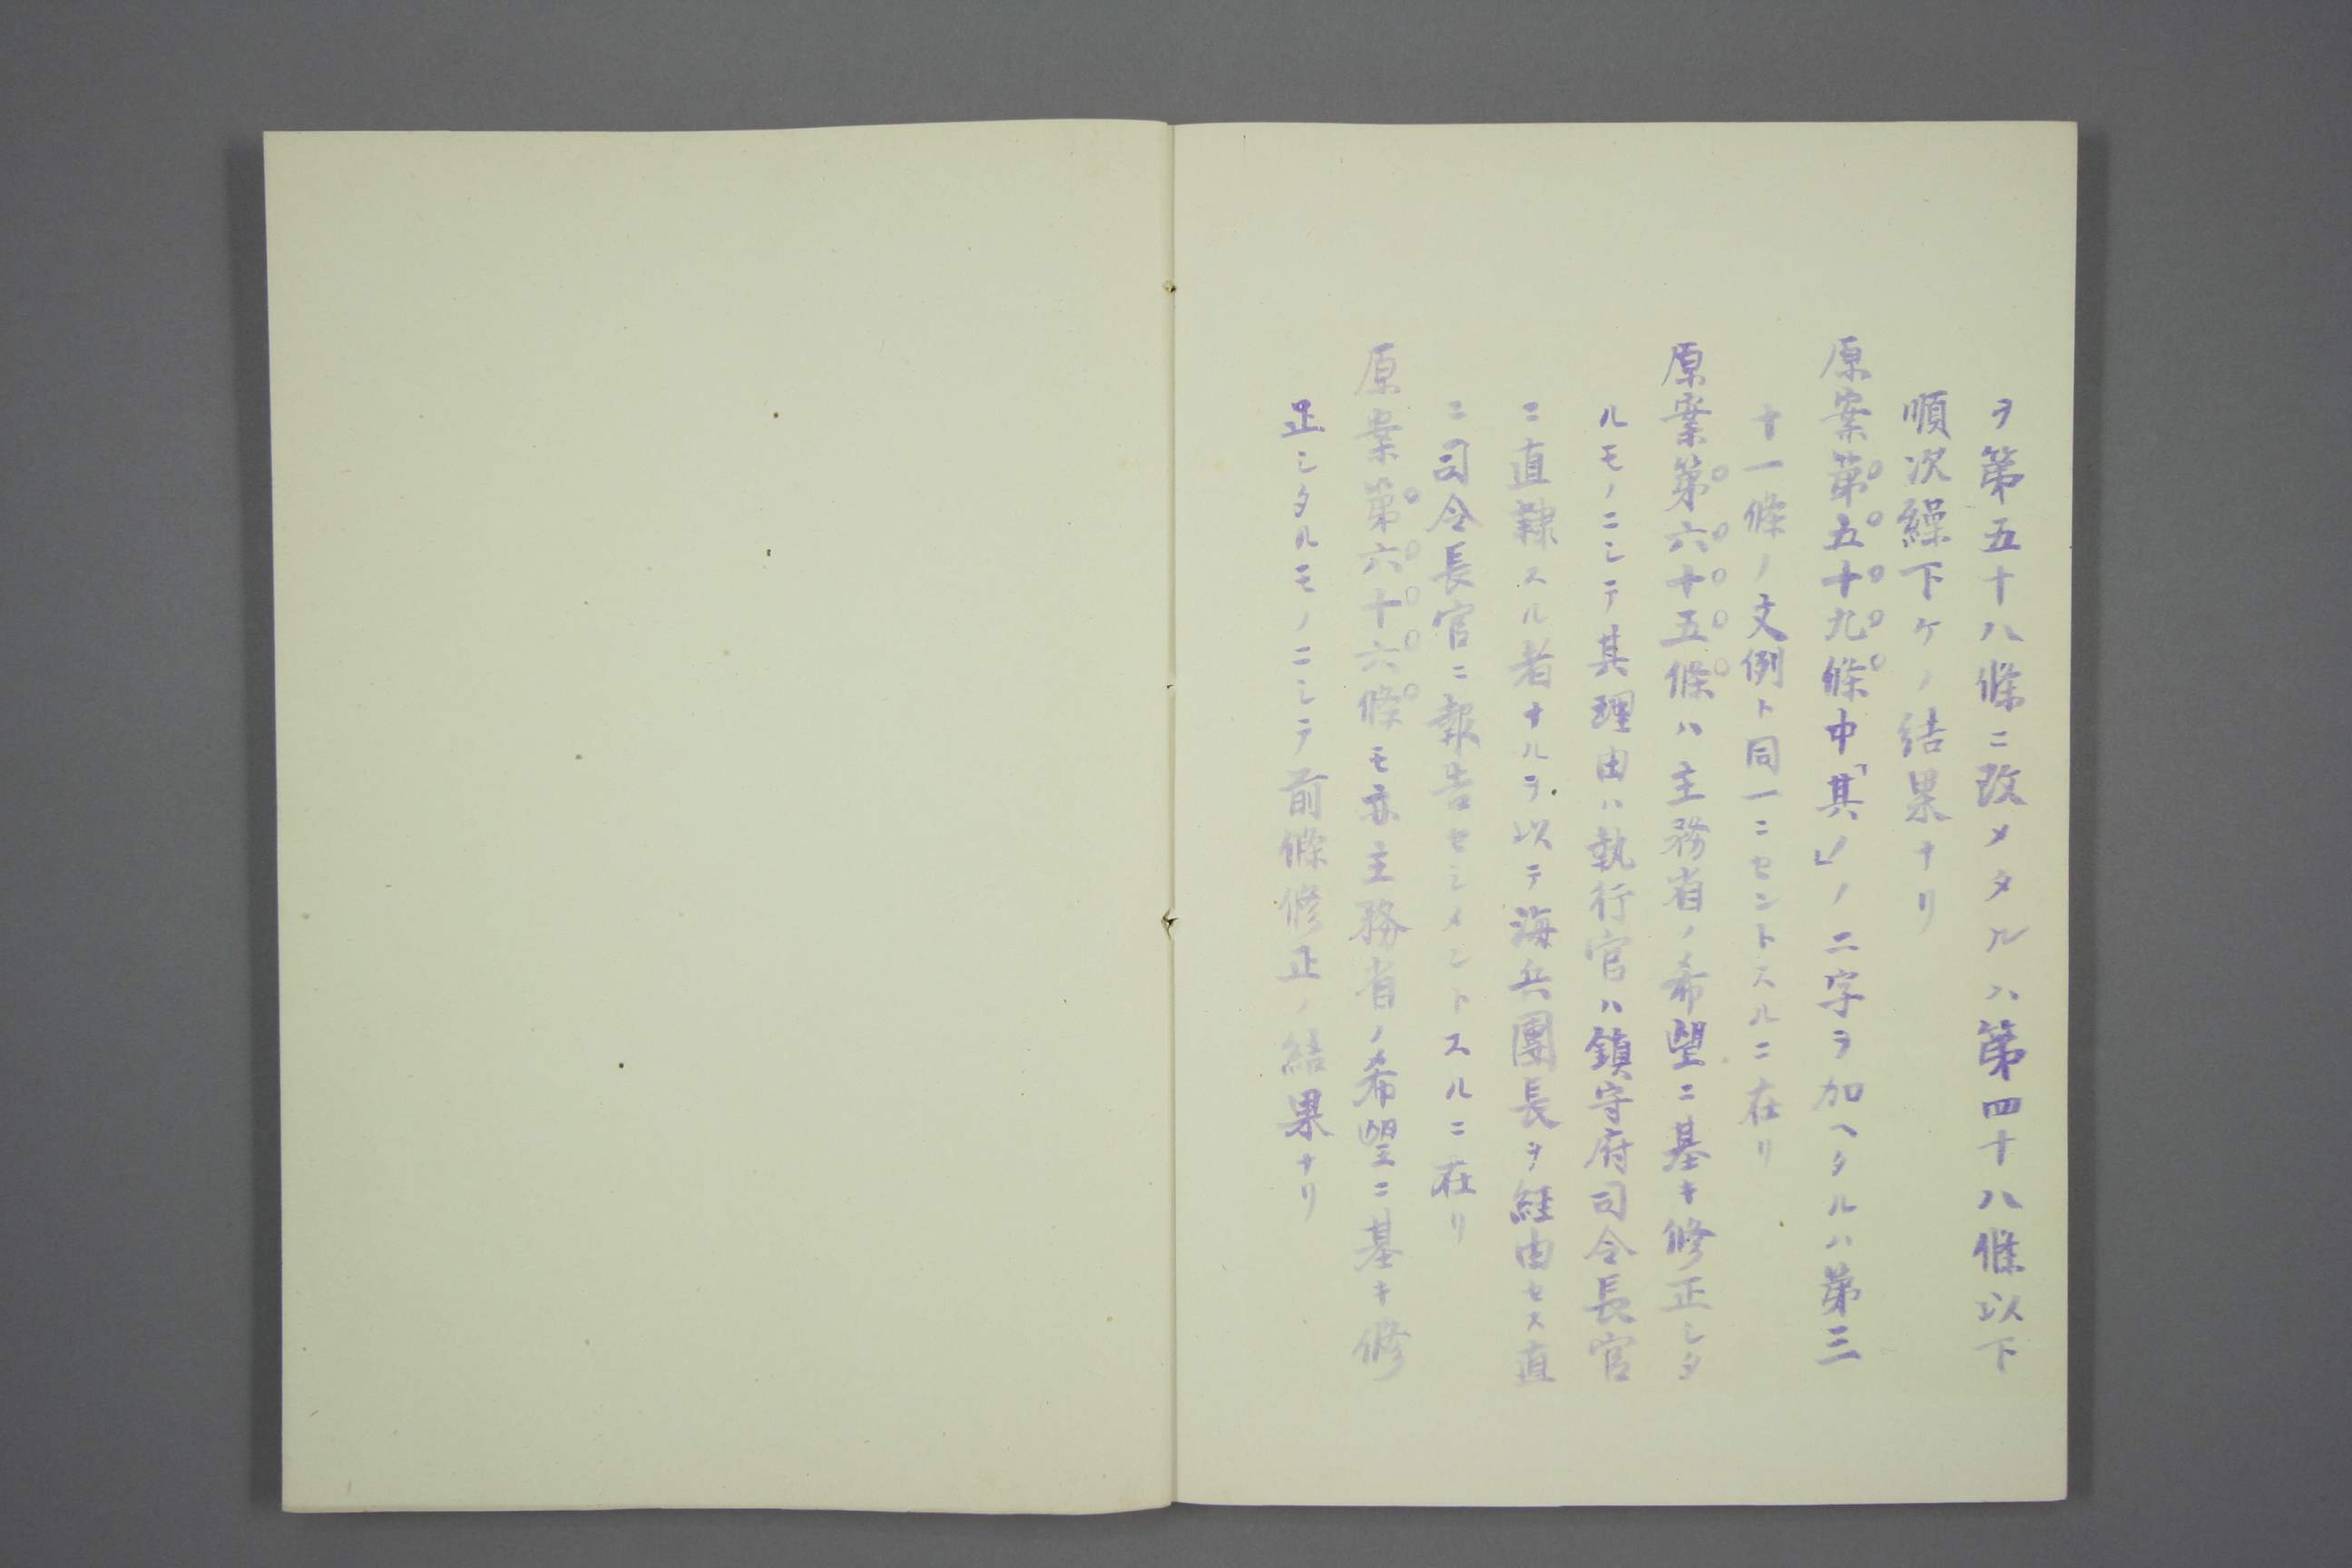 ヲ第五十八條ニ改メタルハ第四十八條以下
順次繰下ケノ結果ナリ
原案第五十九條中「其ノ」ノ二字ヲ加ヘタルハ第三
十一條ノ文例ト同一ニセントスルニ在リ
原案第六十五條ハ主務省ノ希望ニ基キ修正シタ
ルモノニシテ其理由ハ執行官ハ鎮守府司令長官
ニ直隷スル者ナルヲ以テ海兵團長ヲ経由セス直
ニ司令長官ニ報告セシメントスルニ在リ
原案第六十六條モ亦主務省ノ希望ニ基キ修
正シタルモノニシテ前條修正ノ結果ナリ